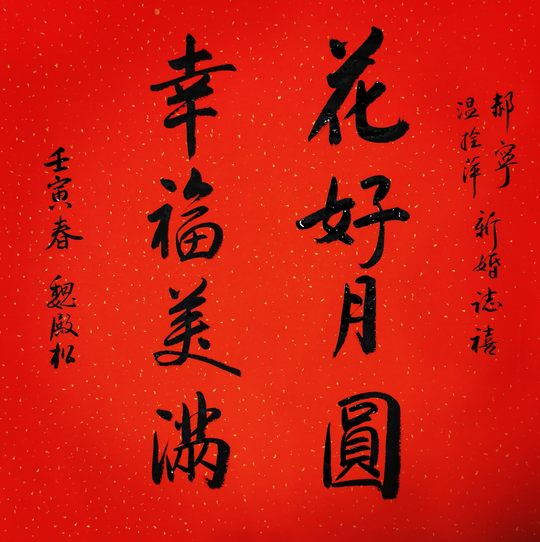 郝寧
温拴萍
新婚誌禧
花好月圓
幸福美满
壬寅春
魏殿松